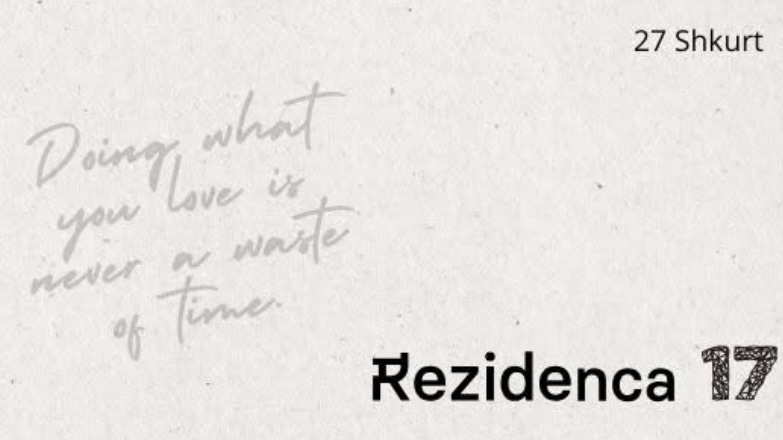 27 Shkurt
Doing what
you love is
never a waste
of time.
Rezidenca 17